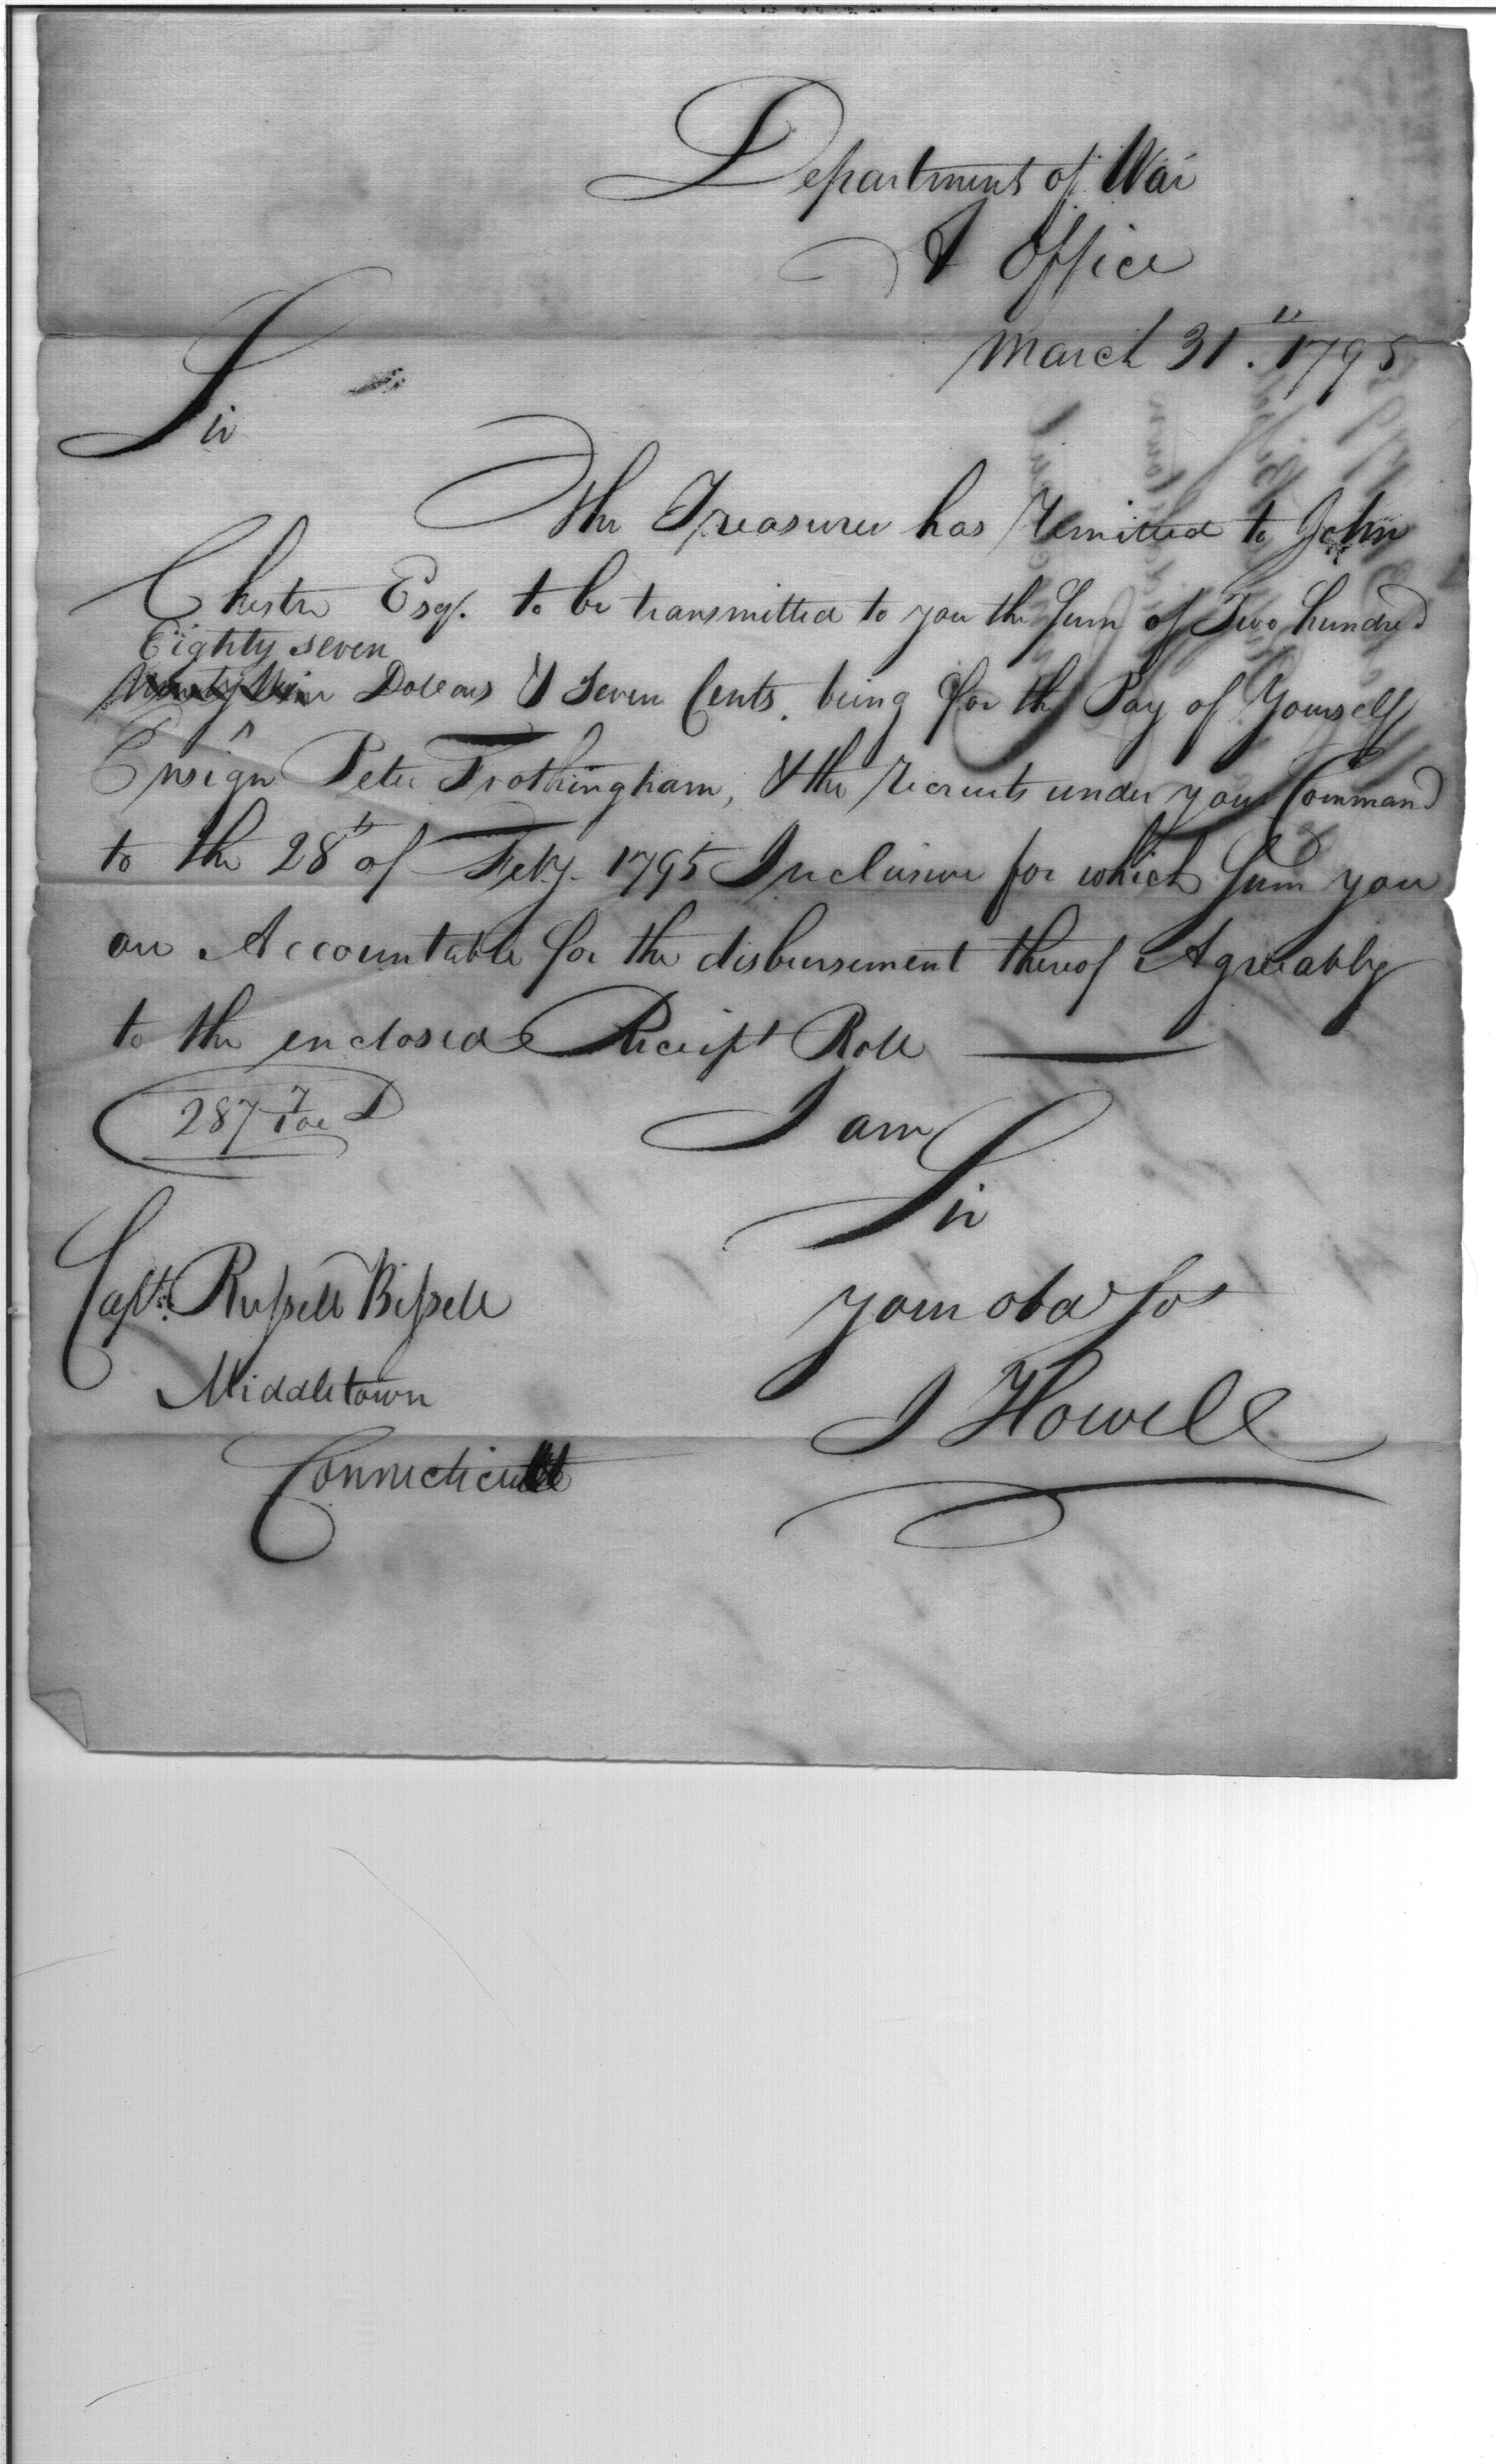 Department of War
A Office
March 31st. 1795
Sir
The Treasurer has remitted to John
Chester Esqr. to be transmitted to you the Sum of Two hundred
Eighty seven
Dollars & Seven Cents. being for the Pay of Yourself
Ensign Peter Frothingham, & the recruits under your Command
to the 28th of Feby. 1795 Inclusive for which Sum you
are Accountable for the disbursement thereof Agreeably
to the enclosed Receipt Roll
287 7/100 D
I am
Sir
Capt. Russell Bissell
your obd Sert
Middletown
J Howell
Connecticutt